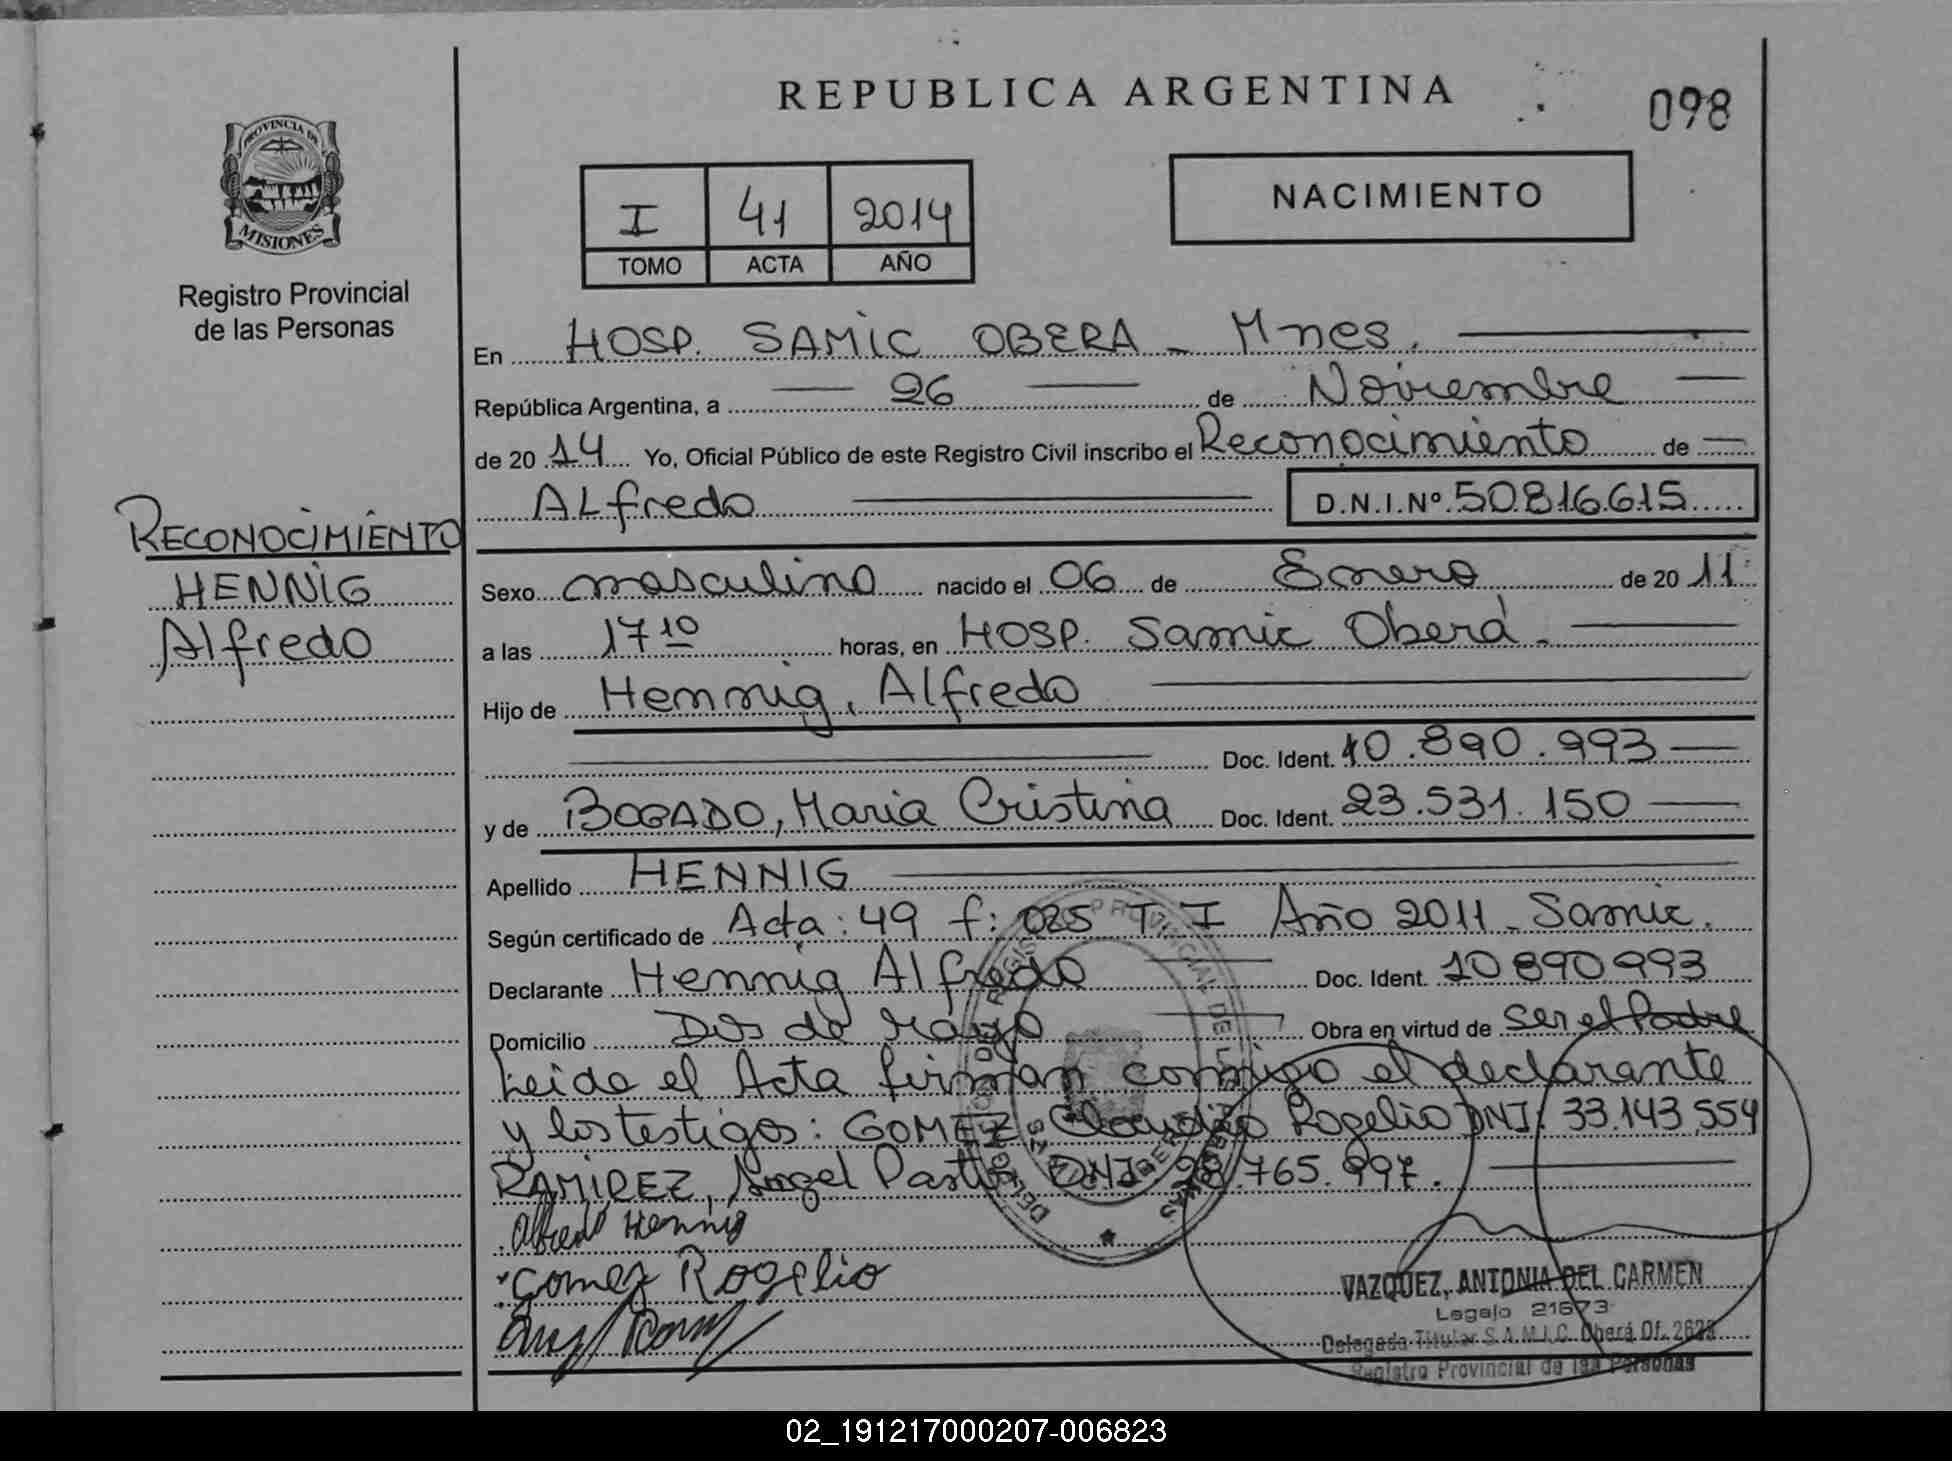 REPUBLICA ARGENTINA
098
PROVINCIA DE
MISIONES
Registro Provincial
de las Personas
I 41 2014
TOMO ACTA AÑO
NACIMIENTO
En HOSP. SAMIC OBERA - Mnes.
República Argentina, a 26 de Noviembre
de 2014 Yo, Oficial Público de este Registro Civil inscribo el Reconocimiento de
ALfredo D.N.I.Nº 50.816.615
RECONOCIMIENTO
HENNIG
Alfredo
Sexo masculino nacido el 06 de Enero de 2011
a las 17 10 horas, en HOSP. Samic Oberá.
Hijo de Hennig, Alfredo
Doc. Ident. 10.890.993
y de BOGADO, Maria Cristina Doc. Ident. 23.531.150
Apellido HENNIG
Según certificado de Acta: 49 f: 025 T. I Año 2011 - Samic.
Declarante Hennig Alfredo Doc. Ident. 10890993
Domicilio Dos de Mayo Obra en virtud de ser el Padre
Leida el Acta firman conmigo el declarante
y los testigos: GOMEZ Claudio Rogelio DNI: 33.143.554
RAMIREZ, Angel DNI: 28.765.997.
Alfredo Hennig
Gomez Rogelio
VAZQUEZ, ANTONIA DEL CARMEN
Legajo 21573
Delegada Titular S.A.M.I.C. Oberá Of. 2623
Registro Provincial de las Personas
02_191217000207-006823